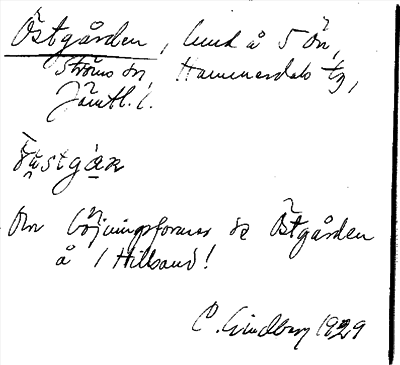 Östgården, lmd å 5 Ön,
Ströms sn, Hammerdals tg,
Jämtl. l.
Om böjningsformer se Östgården
å 1 Hillsand!
C. Lindberg 1929